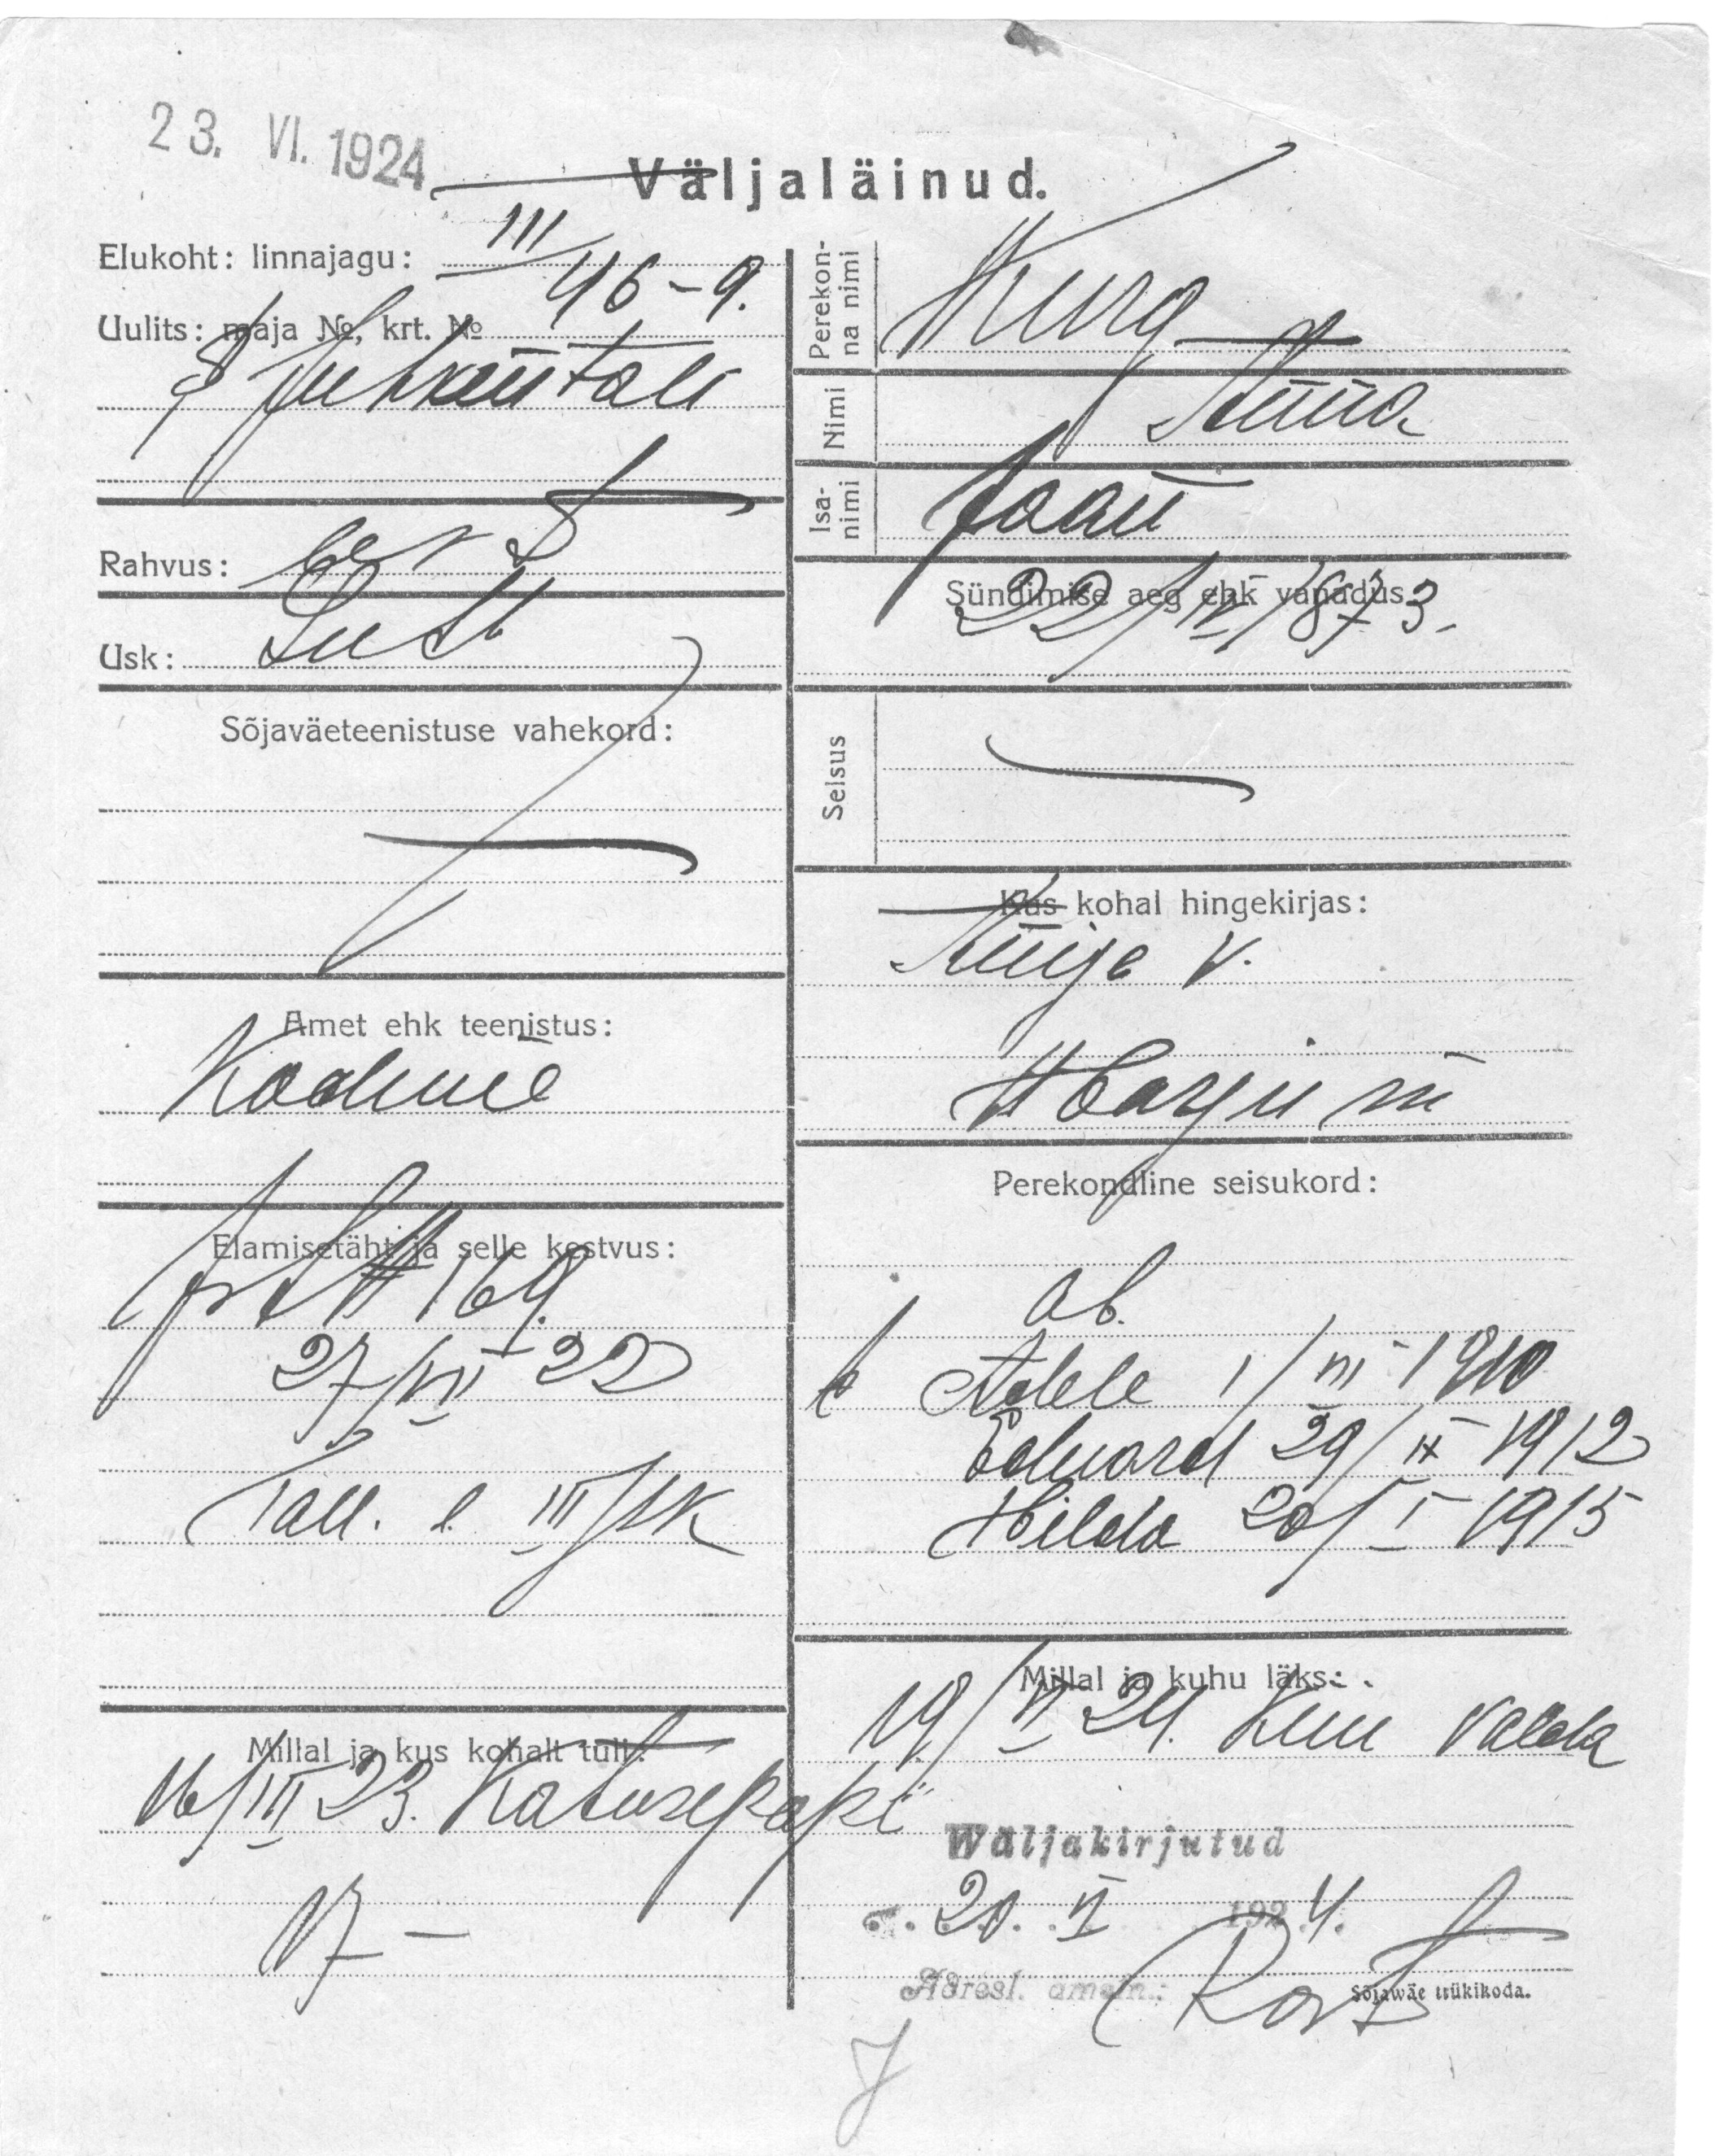 23. VI. 1924
Väljaläinud.
Elukoht: linnajagu: III
46-9.
Uulits: maja №, krt. №
Juhkentali
Rahvus: eest
Usk: Lutt
Sõjaväeteenistuse vahekord:
Amet ehk teenistus:
Kodune
Elamisetäht ja selle kestvus:
169.
27/VII 22
Tall. l. III jsk
Millal ja kus kohalt tuli:
16/III 23. Katusepapi
17 –
Perekon-
na nimi
Kurg
Nimi
Anna
Isa-
nimi
Jaan
Sündimise aeg ehk vanadus
22/IV 1873.
Seisus
Kus kohal hingekirjas:
v.
Harju m
Perekondline seisukord:
ab.
Adele 1/III 1910
Eduard 29/IX 1912
Hilda 20/I 1915
Millal ja kuhu läks:
19/VI 24. Kuu valda
Wäljakirjutud
20. VI 1924.
Adresl. ametn.:
Sõjawäe trükikoda.